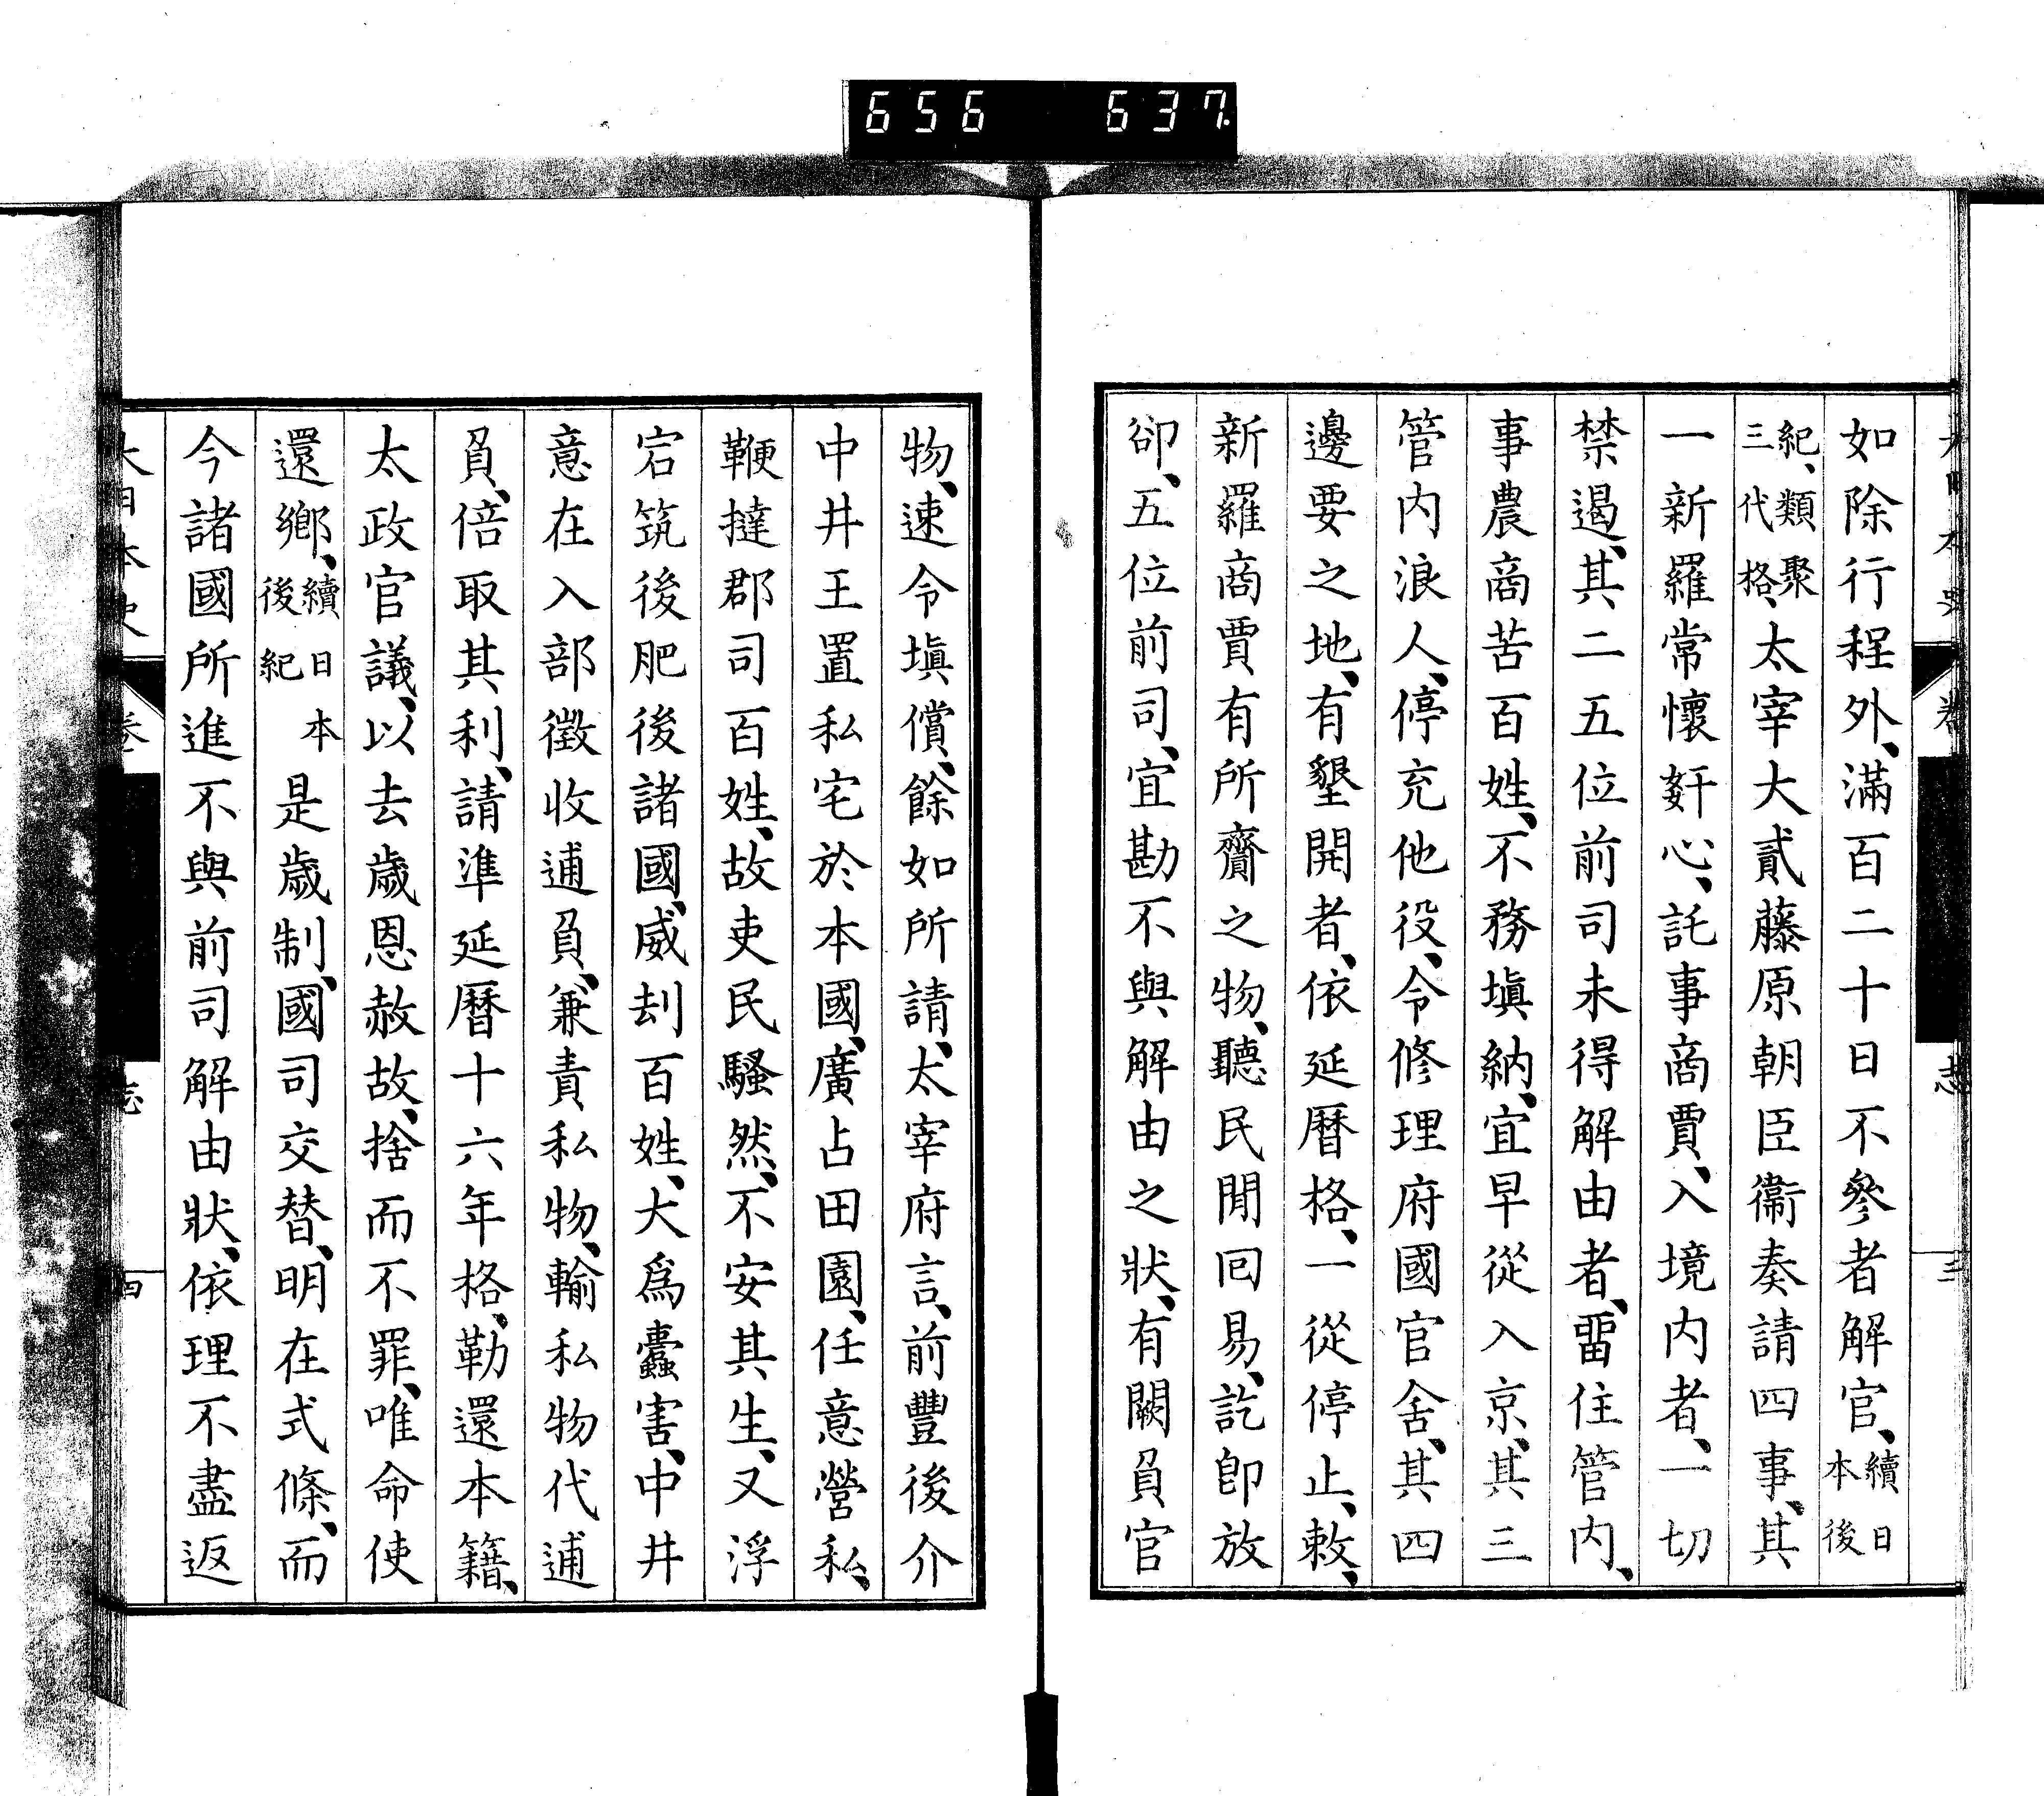 656 637
如除行程外、滿百二十日不參者解官、續日本後
紀、類聚三代格、太宰大貳藤原朝臣衞奏請四事、其
一新羅常懷姧心、託事商賈、入境内者、一切
禁遏、其二五位前司未得解由者、畱住管内、
事農商苦百姓、不務塡納、宜早從入京、其三
管内浪人、停充他役、令修理府國官舍、其四
邊要之地、有墾開者、依延曆格、一從停止、敕、
新羅商賈有所齎之物、聽民閒囘易、訖卽放
卻、五位前司、宜勘不與解由之狀、有闕員官
物、速令塡償、餘如所請、太宰府言、前豐後介
中井王置私宅於本國、廣占田園、任意營私、
鞭撻郡司百姓、故吏民騷然、不安其生、又浮
宕筑後肥後諸國、威刦百姓、大爲蠹害、中井
意在入部徵收逋負、兼責私物、輸私物代逋
負、倍取其利、請準延曆十六年格、勒還本籍、
太政官議、以去歲恩赦故、捨而不罪、唯命使
還鄉、續日本後紀 是歲制、國司交替、明在式條、而
今諸國所進不與前司解由狀、依理不盡返
大日本史 卷 志 四